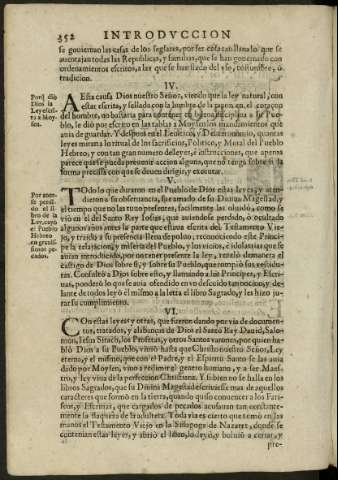 352 INTRODVCCION
se gouiernan las casas de los seglares, por ser cosa tan llana lo que se
auentajan todas las Republicas, y familias, que se han gouernado con
ordenamientos escritos, a las que se han fiado del vso, costumbre, ò
tradicion.
IV.
Porq̃ diò
Dios la
Ley escri-
ta a Moy-
sen.
A Esta causa Dios nuestro Señor, viendo que la ley natural, con
estar escrita, y sellado con la lumbre de su en el coraçon
del hombre, no bastaria para en disciplina a su Pueblo,
le diò por escrito en las tablas a Moysen los mandamientos que
auia de guardar. Y despues en el Leuitico, y Deuteronomio, quantas
leyes miraua lo ritual de los sacrificios, Politico, y Moral del Pueblo
Hebreo, y con tan gran numero de leyes, è instrucciones, que apenas
parece que se pueda preuenir accion alguna, que no tenga sobre si la
forma precissa con que se deuia dirigir, y executar.
V.
Por auer-
se perdi-
do el li-
bro de la
Ley, cayò
el Pueblo
Hebreo
en grauis-
simos pe-
cados.
TOdo lo que duraron en el Pueblo de Dios estas leyes, y atendie-
ron a su obseruancia, fue amado de su Diuina Magestad, y
el tiempo que no las tuuo presentes, facilmente las oluidò, como se
viò en el del Santo Rey Iosias, que auiendose perdido, ò ocultado
algunos años antes la parte que estaua escrita del Testamento Vie-
jo, y traida a su presencia lleno de polvo, reconociendo este Princi-
pe la relaxacion, y miseria del Pueblo, y los vicios, è idolatrias que se
auian introducido, por no tener presente la Ley, temiò dimanera el
castigo de Dios sobre si, y sobre su Pueblo, que rompiò sus vestidu-
ras. Consultò a Dios sobre esto, y llamando a los Principes, y Escri-
uas, ponderò lo que se auia ofendido en vez de sido tan copiosos, de-
lante de todos leyò èl mismo a la letra el libro Sagrado, y les hizo
jurar su cumplimiento.
VI.
COn estas leyes, y otras, que fueron dando por via de documen-
tos, tratados, y alabanças de Dios el Santo Rey Dauid, Salo-
mon, Iesus Sirach, los Profetas, y otros Santos varones, por quien ha-
blò Dios a su Pueblo, vino hasta que Christo nuestro Señor, Ley
eterna, y el mismo, que con el Padre, y el Espiritu Santo se las auia
dado por Moysen, vino a redimir el genero humano, y a ser Maes-
tro, y ley viua de la perfeccion Christiana. Y si bien no se halla en los
libros Sagrados, que su Diuina Magestad escriuiesse mas de aquellos
caracteres que formò en la tierra, quando quiso conuencer a los Fari-
seos, y Escriuas, que cargados de pecados acusauan tan constante-
mente la flaqueza de la adultera. Toda via es cierto que tomò en las
manos el Testamento Viejo en la Sinagoga de Nazaret, donde se
contenian estas leyes, y abriò el libro, lo leyò, y boluiò a cerrar, y
pre-